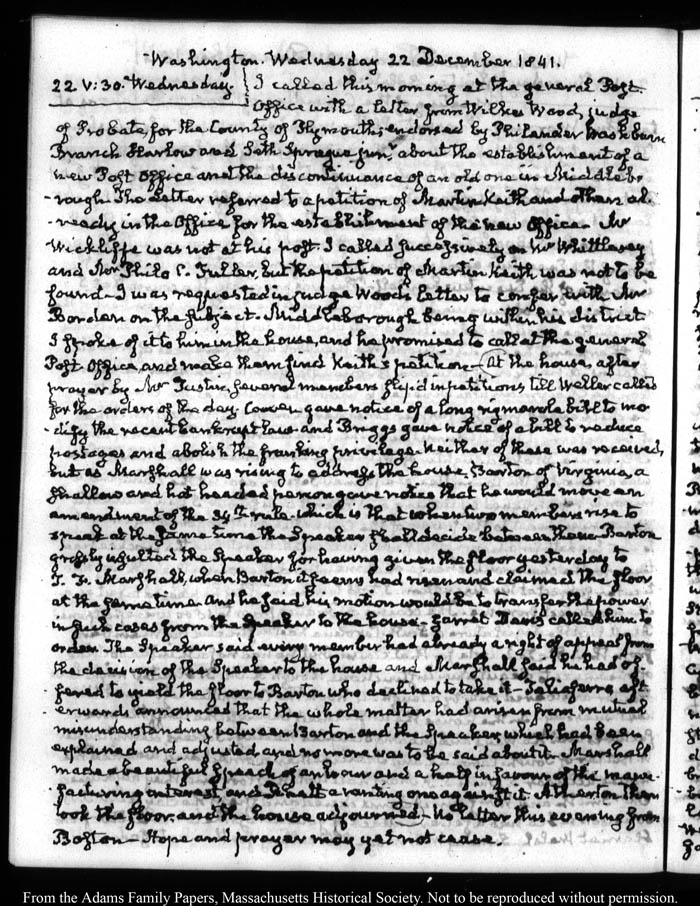 Washington. Wednesday 22 December 1841.
22. V:30. Wednesday. I called this morning at the general Post.
Office with a letter from Wilkes Wood, judge
of Probate, for the County of Plymouth, endorsed by Philander Washburn
Branch Harlow and Seth Sprague junr. about the establishment of a
new Post Office and the discontinuance of an old one in Middlebo-
-rough. The Letter referred to a petition of Martin Keith and others al-
-ready in the Office for the establishment of the new Office. Mr
Wickliffe was not at his post. I called successively on Mr Whittlesey
and Mr Philo C. Fuller, but the petition of Martin Keith was not to be
found. I was requested in judge Wood's letter to confer with Mr
Borden on the subject. Middleborough being within his district
I spoke of it to him in the house, and he promised to call at the general
Post Office, and make them find Keith's petition. At the house, after
prayer by Mr Tustin, several members slip'd in petitions till Weller called
for the orders of the day. Cowen gave notice of a long rigmarole bill to mo-
-dify the recent bankrupt law and Briggs gave notice of a bill to reduce
postages and abolish the franking privilege. Neither of these was received,
but as Marshall was rising to address the house, Barton of Virginia, a
shallow and hot headed person gave notice that he would move an
amendment of the 34th rule which is that when two members rise to
speak at the same time the Speaker shall decide between them. Barton
grossly insulted the Speaker for having given the floor yesterday to
T. F. Marshall, when Barton it seems had risen and claimed the floor
at the same time and he said his motion would be to transfer the power
in such cases from the Speaker to the house. Garret Davis called him to
order. The Speaker said every member had already a right of appeal from
the decision of the Speaker to the house and Marshall said he had of-
-fered to yield the floor to Barton who declined to take it. Taliaferro aft-
-erwards announced that the whole matter had arisen from mutual
misunderstanding between Barton and the Speaker, which had been
explained and adjusted and no more was to be said about it. Marshall
made a beautiful speech of an hour and a half in favour of the manu-
-facturing interest, and Rhett a ranting one against it. Atherton then
took the floor, and the house adjourned. No letter this evening from
Boston. Hope and prayer may yet not cease.
From the Adams Family Papers, Massachusetts Historical Society. Not to be reproduced without permission.